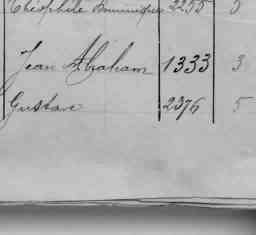 Théophile Dominique 2255 5
Jean Abraham 1333 3
Gustave 2376 5